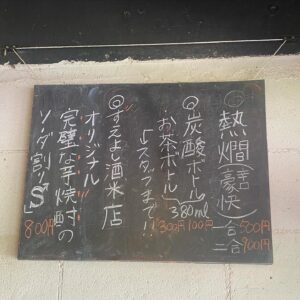 熱燗(豪快)
一合 500円
二合 900円
◎炭酸ボール
お茶ボトル
380ml
100円
300円
↳スタッフまで!!
◎すえよし酒米店
オリジナル
完璧な芋焼酎の
ソーダ割り"S"
800円